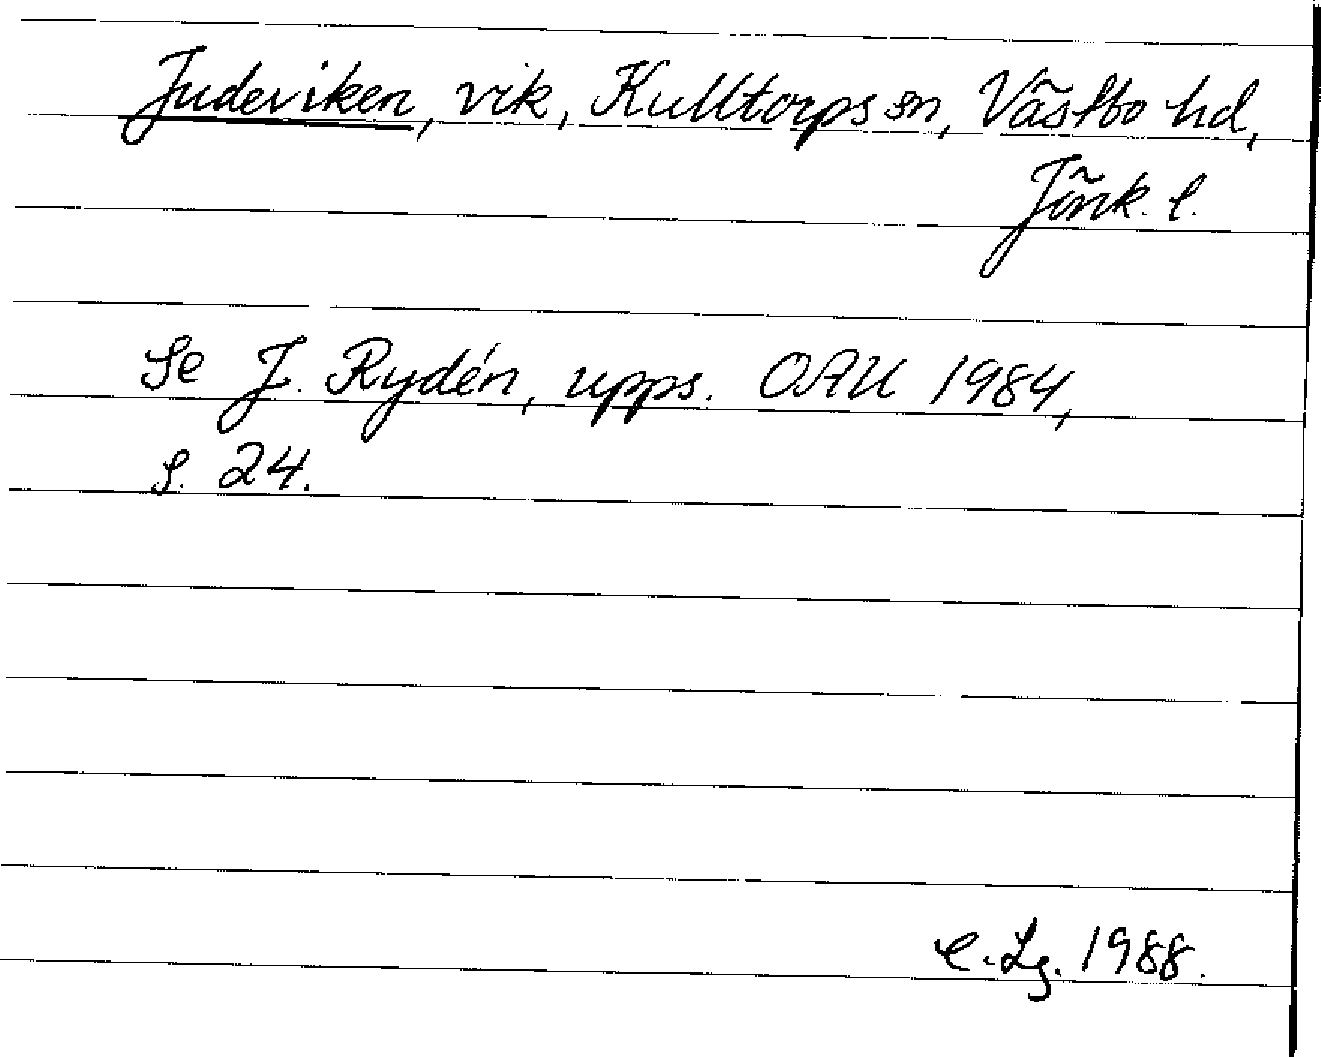 Judeviken, vik, Kulltorps sn, Västbo hd,
Jönk. l.
Se J. Rydén, upps. OAU 1984,
s. 24.
C. Lg. 1988.